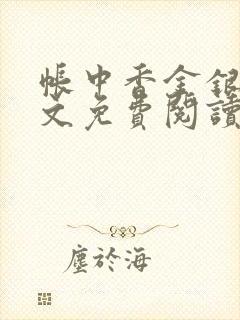 帳中香金銀
文免費閱讀
塵於海